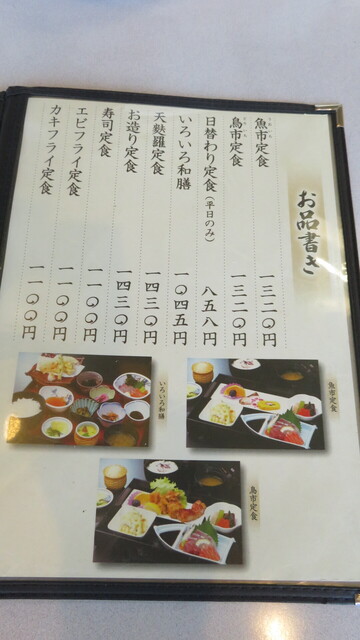 お品書き
魚市定食 一三二〇円
鳥市定食 一三二〇円
日替わり定食(平日のみ) 八五八円
いろいろ和膳 一〇四五円
天麩羅定食 一四三〇円
お造り定食 一四三〇円
寿司定食 一一〇〇円
エビフライ定食 一一〇〇円
カキフライ定食 一一〇〇円
いろいろ和膳
魚市定食
鳥市定食